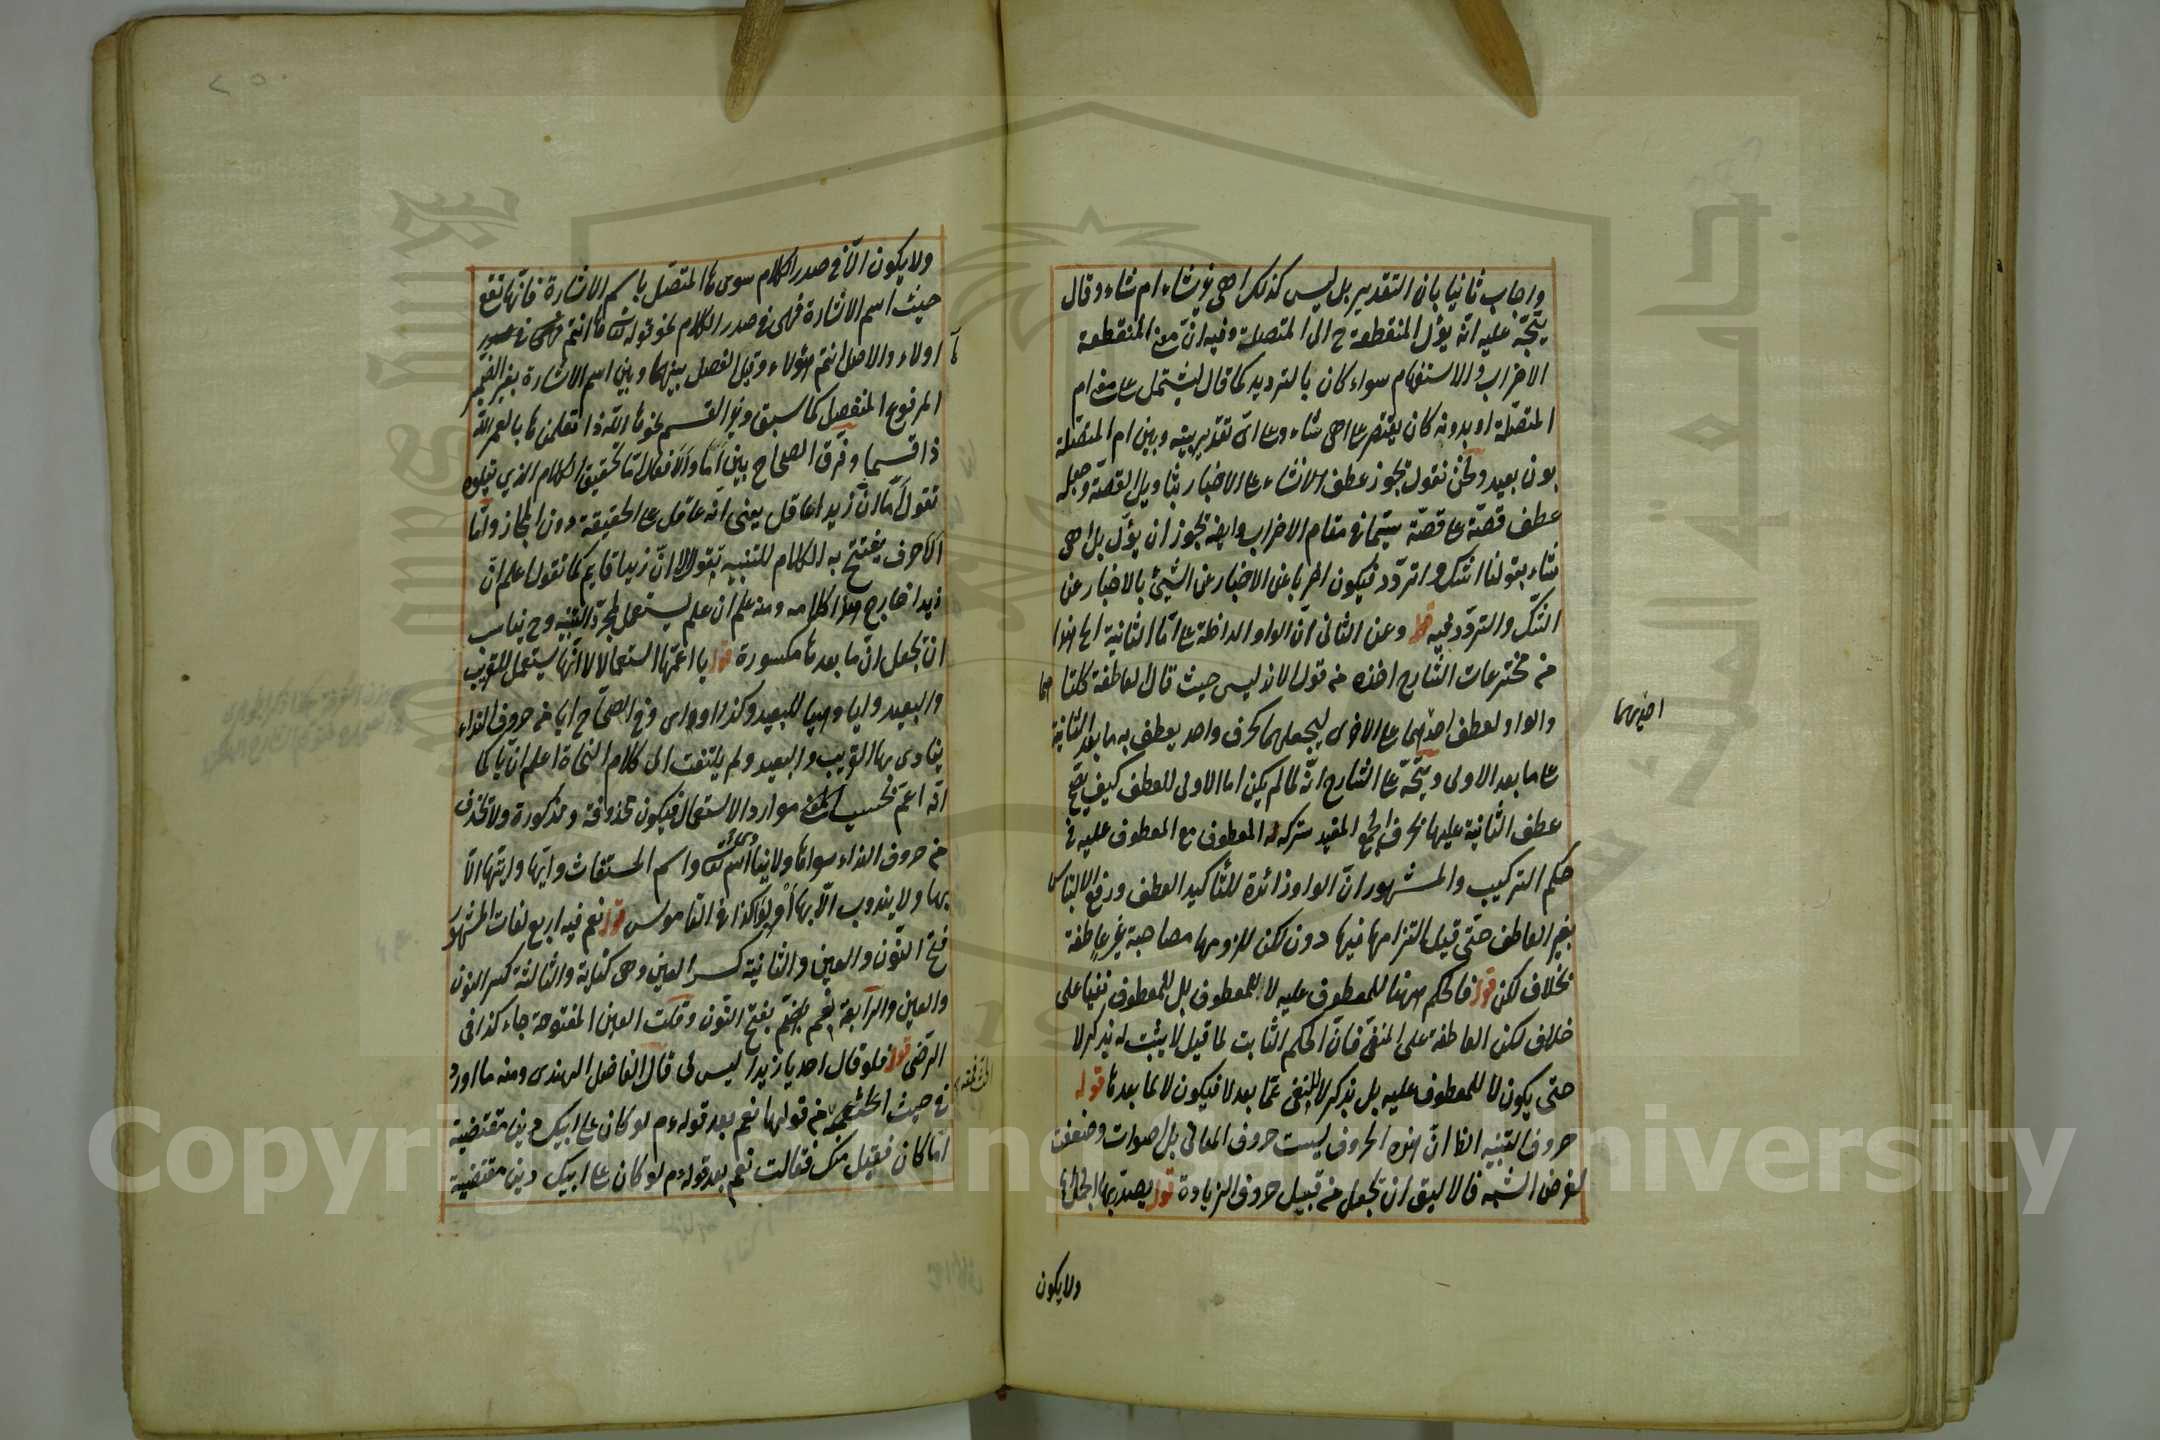 واجاب ثانيا بان التقدير بل ليس كذلك اهى شاء ام شاء وقال
يتجّه عليه انّه يؤل المنقطعة ح الى المتصلة وفيه انّ معنى المنقطعة
الاضراب والاستفهام سواء كان بالترديد كما قال ليشتمل على معنى ام
المتصّلة او بدونه كان يقتصر على اهى شاء وعلى اىّ تقدير بينه وبين ام المتصّلة
بون بعيد ونحن نقول تجوز عطف الانشاء على الاخبار بتاويل القصّة وجعله
عطف قصّة على قصّة سيّما فى مقام الاضراب وايضا تجوز ان يؤّل بل اهى
شاء بقولنا اشكّ واتردّد فيكون اضرابا عن الاخبار عن الشيئ بالاخبار عن
الشكّ والتردّد فيه قوله وعن الثانى انّ الواو الداخلة على امّا الثانية الخ هذا
من مخترعات الشارح اخذه من قول الاندليسى حيث قال العاطفة كلتا
هما
والواو لعطف احديهما على الاخرى ليجعلهما كحرف واحد يعطف به ما بعد الثانية
احديهما
على ما بعد الاولى ويتّجه على الشارح انّه لما لم يكن اما الاولى للعطف كيف يصّح
عطف الثانية عليها بحرف الجمع المفيد شركة المعطوف مع المعطوف عليه فى
حكم التركيب والمشهور انّ الواو زائدة للتأكيد العطف ودفع الالتباس
بغير العاطف حتّى قيل التزامها فيها دون لكن للزومها مصاحبة غير عاطفة
بخلاف لكن قوله فالحكم ههنا للمعطوف عليه لا للمعطوف بل للمعطوف نفيا على
خلاف لكن العاطفة على المنفىّ فانّ الحكم الثابت لما قيل لا يثبت له بذكر لا
حتى يكون لا للمعطوف عليه بل بذكر لا لينفى عمّا بعد لا فيكون لا لما بعدها قوله
حروف التنبيه انّ هذه الحروف ليست حروف المعانى بل اصوات وضعت
لغرض التنبيه فالاليق ان تجعل من قبيل حروف الزيادة قوله يصدّر بها الجمل كلها
ولا يكون
ولا يكون الّا فى صدر الكلام سوى ها المتصّل باسم الاشارة فانّها تقع
حيث اسم الاشارة فهى فى صدر الكلام نحو قوله تعالى ها انتم
ها
اولاء والاصل انتم هؤلاء وقيل الفصل بينها وبين اسم الاشارة بغير الضمير
المرفوع المنفصل كما سبق وبالقسم نحو ها اللّه ذا تعلمن ها بالعمر اللّه
ذا قسما وفرّق الصحاح بين اَمَا واَلَا فقال امّا لتحقيق الكلام الذى يتلوه
تقول اَمَا انّ زيدا عاقل يعنى انّه عاقل على الحقيقة دون المجاز وامّا
اَلَا حرف يفتتح به الكلام للتنبيه تقول الا انّ زيدا قايم كما تقول اعلم انّ
زيدا خارج هذا كلامه ومنه علم ان علم يستعمل لمجرّد التنبيه وح يناسب
ان تجعل انّ ما بعدها مكسورة قوله يا اعمّها استعمالا لانّها يستعمل للقريب
والبعيد وايا وهيا للبعيد وكذا اوواى وفى الصحّاح ايا من حروف النداء
ينادى بها القريب والبعيد ولم يلتفت الى كلام النحاة اعلم انّ يا كما
انّه اعمّ بحسب المعنى موارد الاستعمال فيكون محذوفة ومذكورة ولا تحذف
من حروف النداء سواها ولا ينادى اسم اللّه تعالى واسم المستغاث وايّها وايّتها الّا
بها ولا يندوب الّا بها او بوا كذا فى القاموس قوله نعم فيه اربع لغات المشهور
فتح النّون والعين والثانية كسر العين وهى كنانة والثالثة كسر النون
والعين والرّابعة نحم بفتح النّون وقلب العين المفتوحة حاء كذا فى
الرضى قوله فلو قال احد يا زيد اليس لى قال الفاضل الهندى ومنه ما اورد
فى حيث الخثعميّة من قولها نعم بعد قوله عم لو كان على ابيك دين مقتضية
امّا كان فيقبل منك فقالت نعم بعد قوله عم لو كان على ابيك دين مقتضية
Copyright © King Saud University